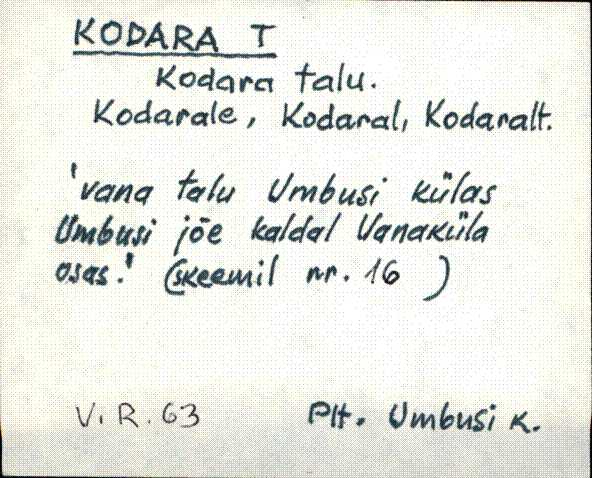 KODARA T
Kodara talu.
Kodarale, Kodaral, Kodaralt.
'vana talu Umbusi külas
Umbusi jõe kaldal Vanaküla
osas.' (skeemil nr. 16 )
V. R. 63 Plt. Umbusi k.